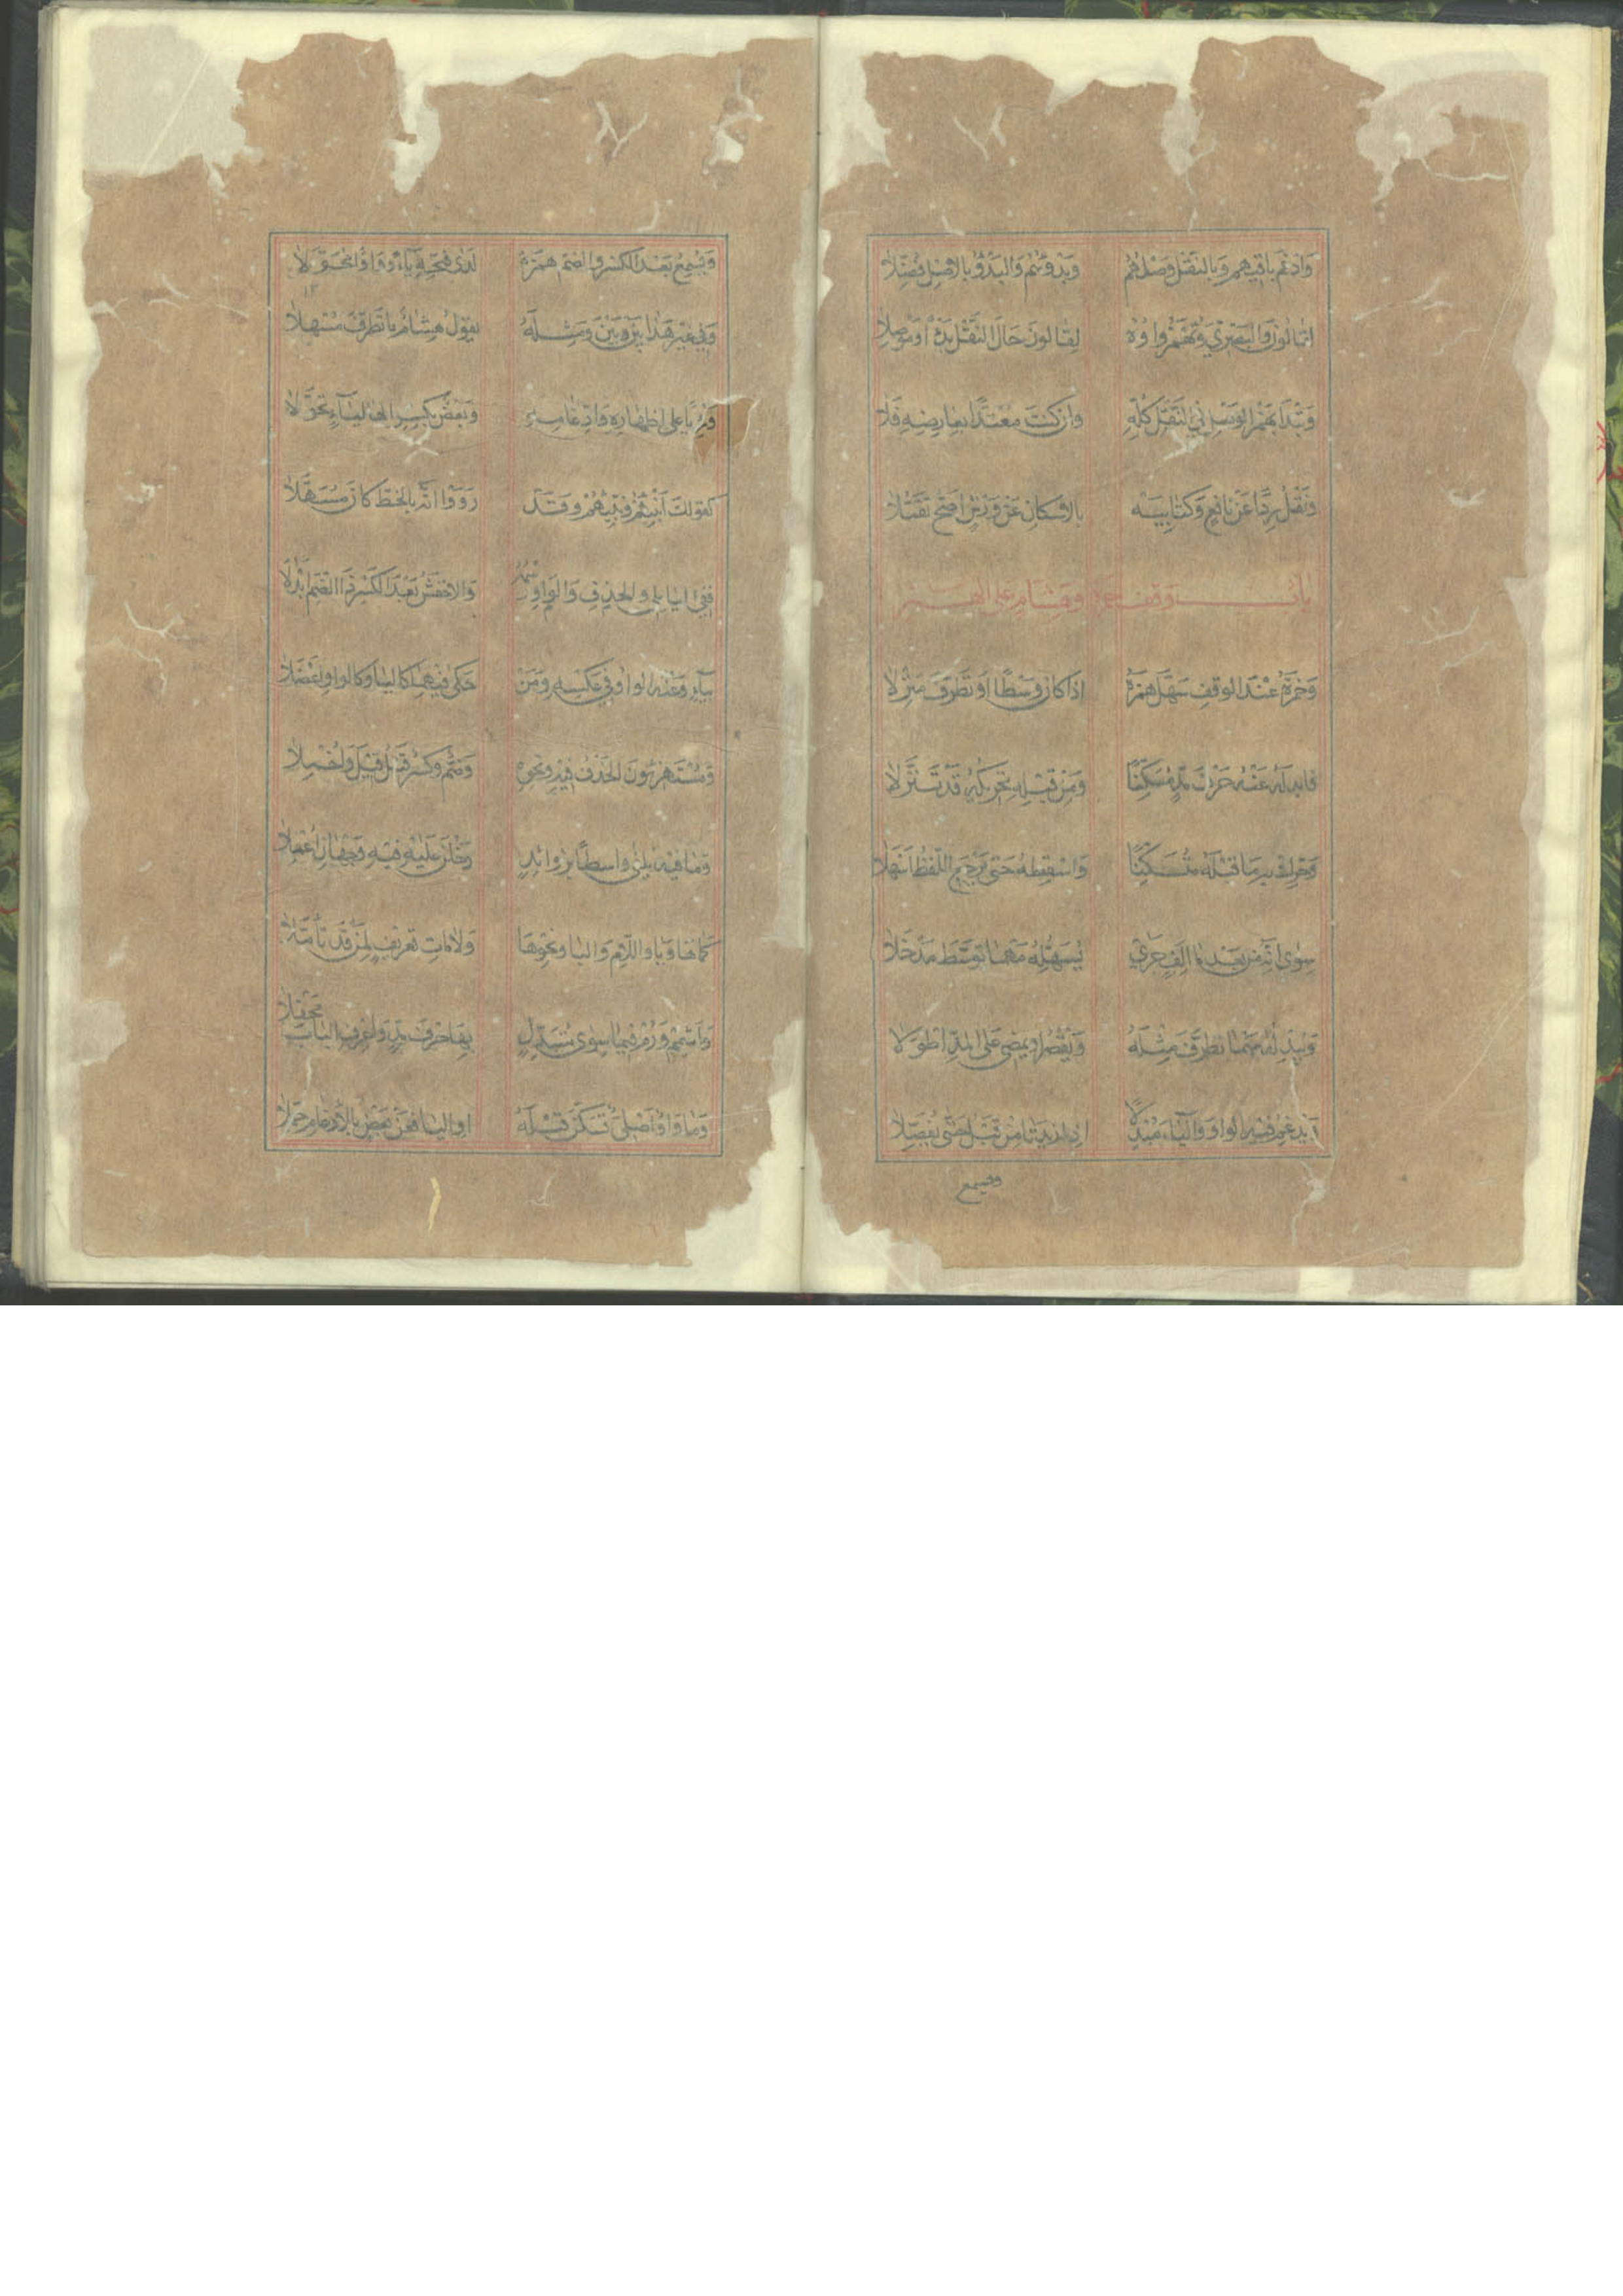 وَادْغَمَ بَاقِيهِم وَبِالنَّقْلِ وَصْلُهُم وَبَدْؤُهُم وَالبَدْؤُ بِالاصْلِ فُضِّلَا
لِقَالُونَ وَالبَصْرِيْ وَتُهْمَزُ وَاوُهُ لِقَالُونَ حَالَ النَّقْلِ بَدْءًا وَمَوْصِلَا
وَتَبْدَا بِهَمْزِ الوَصْلِ فِي النَّقْلِ كُلِّهِ وَاِنْ كُنْتَ مُعْتَدًّا بِعَارِضِهِ فَلَا
وَنَقْلُ رِدًا عَنْ نَافِعٍ وَكِتَابِيَهْ بِالاِسْكَانِ عَنْ وَرْشٍ اَصَحُّ تَقَبُّلَا
بَابُ وقف حمزة وهشام على الهمز
وَحَمْزَةُ عِنْدَ الوَقْفِ سَهَّلَ هَمْزَهُ اِذَا كَانَ وَسْطًا اَوْ تَطَرَّفَ مَنْزِلَا
فَابْدِلْهُ عَنْهُ حَرْفَ مَدٍّ مُسَكِّنًا وَمِنْ قَبْلِهِ تَحْرِيكُهُ قَدْ تَنَزَّلَا
وَحَرِّكْ بِهِ مَا قَبْلَهُ مُتَسَكِّنًا وَاسْقِطْهُ حَتّى يَرْجِعَ اللَّفْظُ اَسْهَلَا
سِوَى اَنَّهُ مِنْ بَعْدِ مَا اَلِفٍ جَرَى يُسَهِّلُهُ مَهْمَا تَوَسَّطَ مَدْخَلَا
وَيُبْدِلُهُ مَهْمَا تَطَرَّفَ مِثْلَهُ وَيَقْصُرُ اَوْ يَمْضِي عَلَى المَدِّ اَطْوَلَا
وَيُدْغِمُ فِيهِ الوَاوَ وَاليَاءَ مُبْدِلًا اِذَا زِيدَتَا مِنْ قَبْلُ حَتّى يُفَصَّلَا
ويسمع
وَيُسْمِعُ بَعْدَ الكَسْرِ وَالضَّمِّ هَمْزَهُ لَدَى فَتْحِهِ يَاءً وَوَاوًا مُحَوَّلَا
وَفِي غَيْرِ هَذَا بَيْنَ بَيْنَ وَمِثْلُهُ يَقُولُ هِشَامٌ مَا تَطَرَّفَ مُسْهِلَا
وَرِءْيًا عَلى اِظْهَارِهِ وَادِّغَامِهِ وَبَعْضٌ بِكَسْرِ الهَا لِيَاءٍ تَحَوَّلَا
كَقَوْلِكَ اَنْبِئْهُمْ وَنَبِّئْهُمْ وَقَدْ رَوَوْا اَنَّهُ بِالخَطِّ كَانَ مُسَهِّلَا
فَفِي اليَا يَلِي وَالوَاوِ وَالحَذْفِ رَسْمَهُ وَالاَخْفَشُ بَعْدَ الكَسْرِ ذَا الضَّمِّ اَبْدَلَا
بِيَاءٍ وَعَنْهُ الوَاوُ فِي عَكْسِهِ وَمَنْ حَكَى فِيهِمَا كَاليَا وَكَالوَاوِ اَعْضَلَا
وَمُسْتَهْزِئُونَ الحَذْفُ فِيهِ وَنَحْوِهِ وَضَمٌّ وَكَسْرٌ قَبْلُ قِيلَ وَاُخْمِلَا
وَمَا فِيهِ يُلْفَى وَاسِطًا بِزَوَائِدٍ دَخَلْنَ عَلَيْهِ فِيهِ وَجْهَانِ اُعْمِلَا
كَمَا هَا وَيَا وَاللَّامِ وَالبَا وَنَحْوِهَا وَلَامَاتِ تَعْرِيفٍ لِمَنْ قَدْ تَاَمَّلَا
وَاَشْمِمْ وَرُمْ فِيمَا سِوَى مُتَبَدِّلٍ بِهَا حَرْفَ مَدٍّ وَاعْرِفِ البَابَ مَحْفِلَا
وَمَا وَاوٌ اَصْلِيٌّ تَسَكَّنَ قَبْلَهُ اَوِ اليَا فَعَنْ بَعْضٍ بِالاِدْغَامِ حُمِّلَا